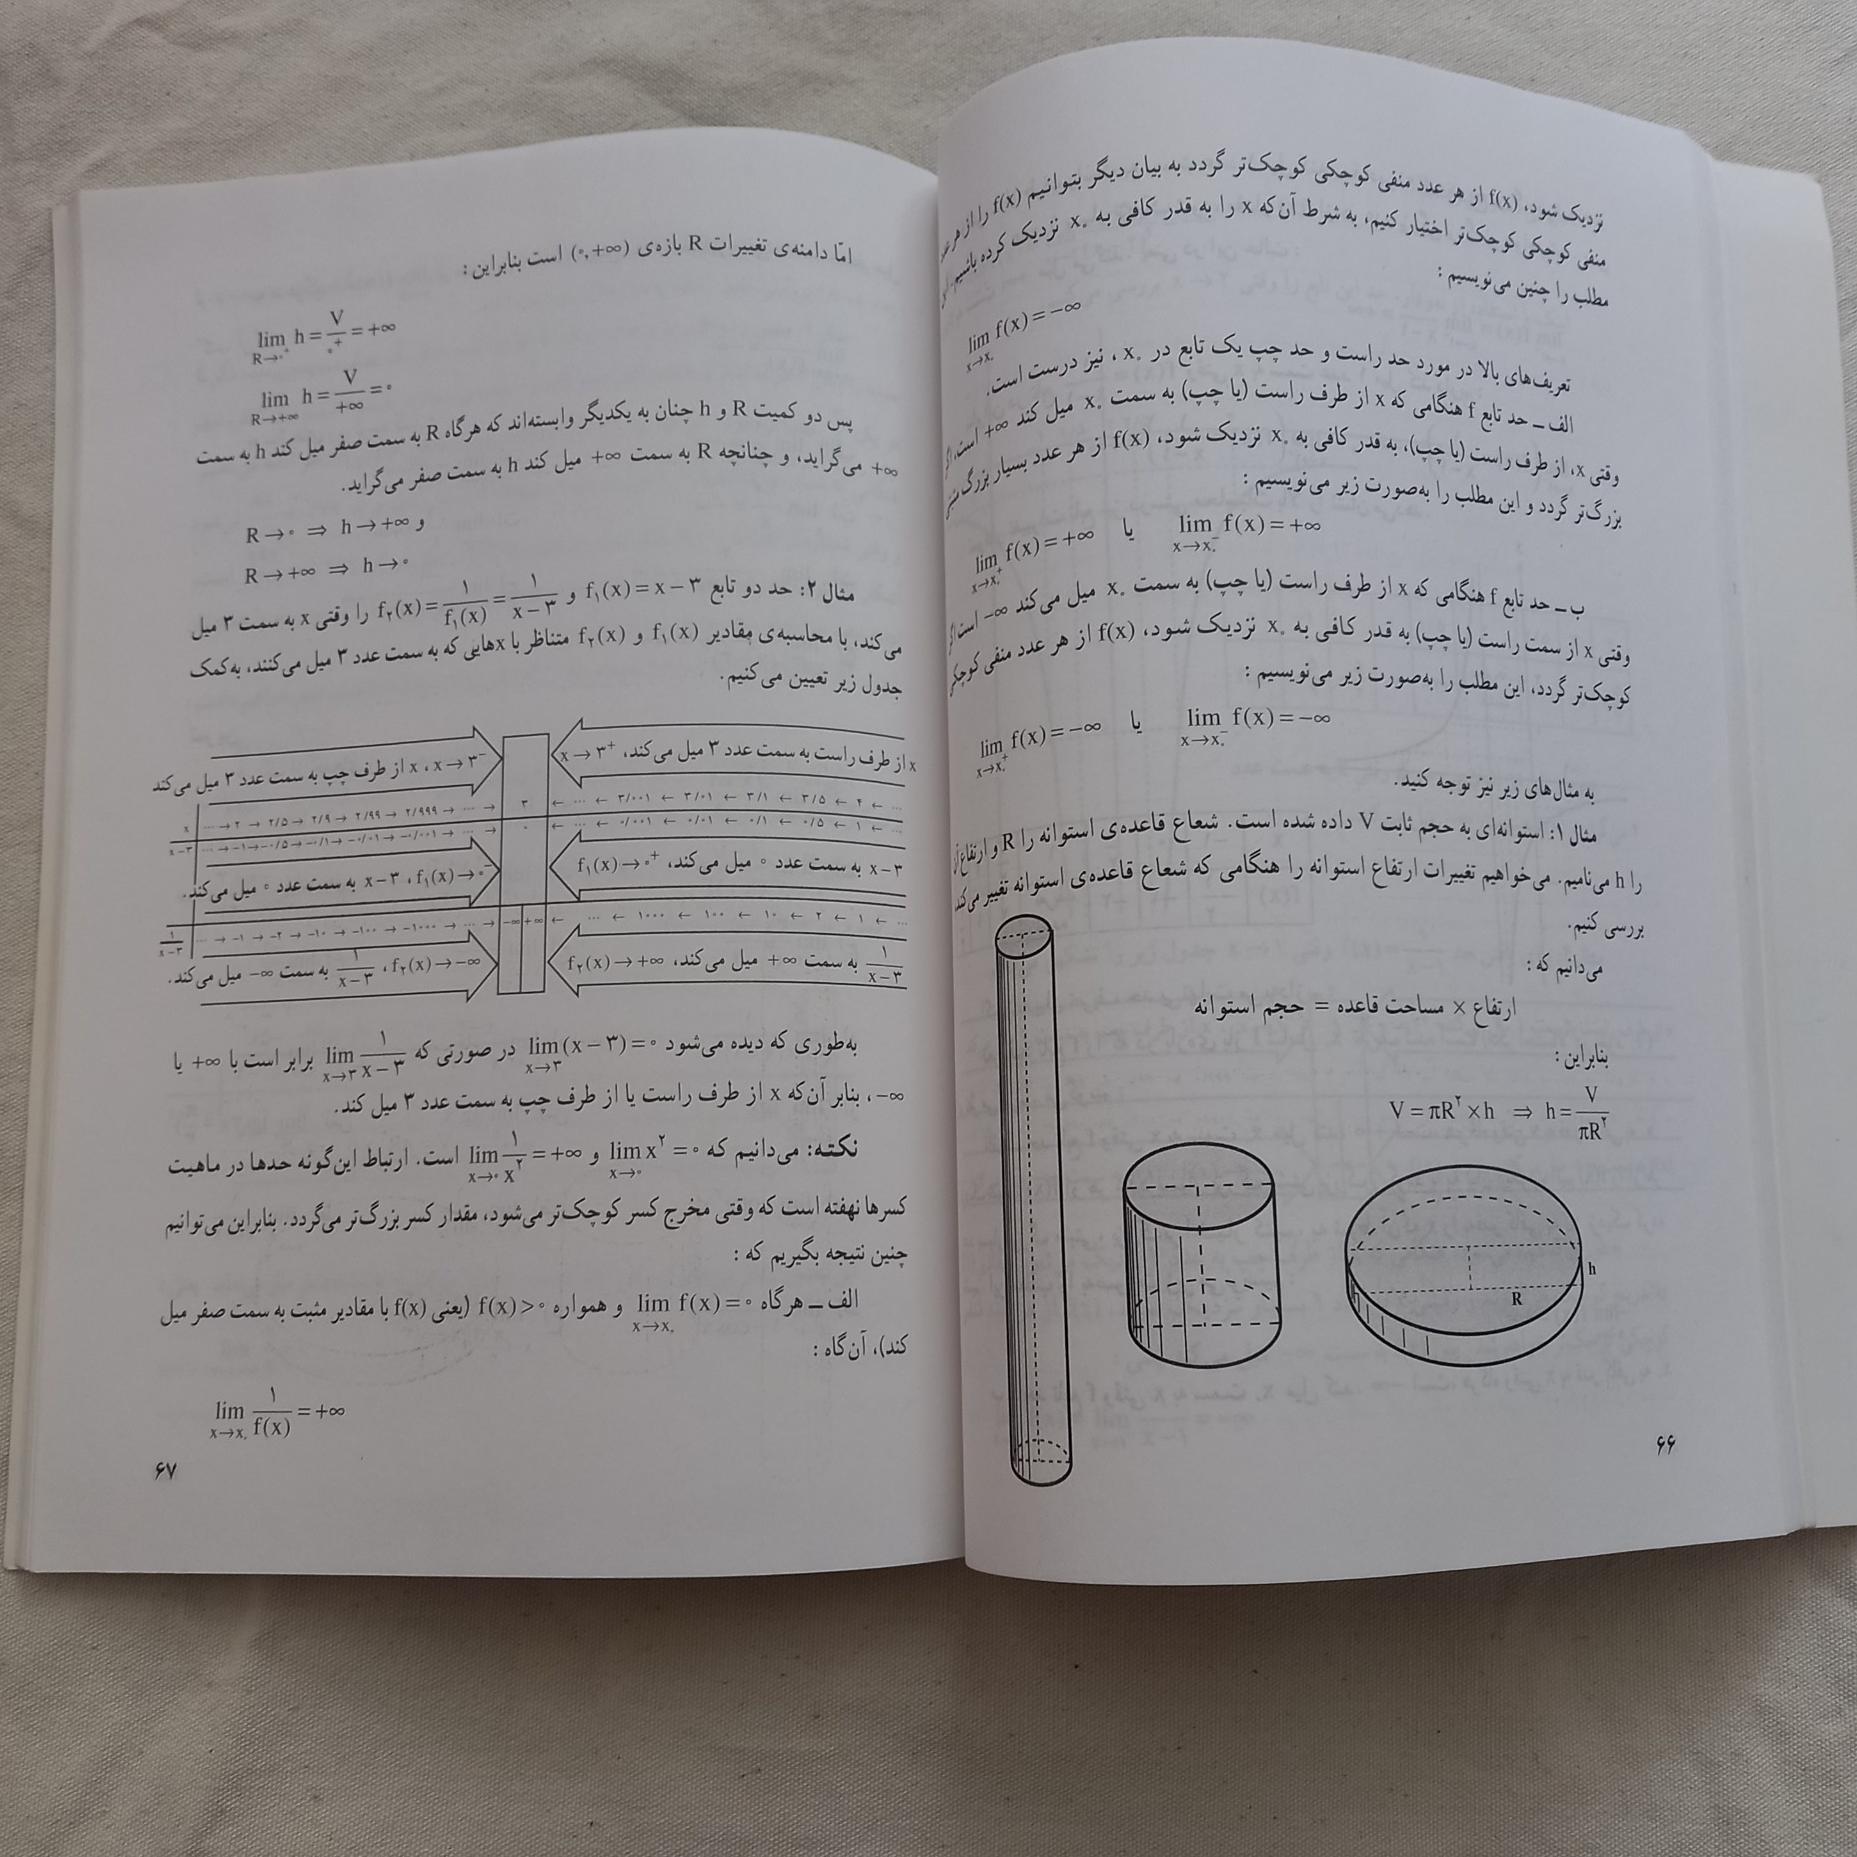 نزدیک شود، f(x) از هر عدد منفی کوچکی کوچک‌تر گردد به بیان دیگر بتوانیم f(x) را از هر عدد
منفی کوچکی کوچک‌تر اختیار کنیم، به شرط آن‌که x را به قدر کافی به x₀ نزدیک کرده باشیم. این
مطلب را چنین می‌نویسیم :
lim f(x) = −∞
x→x₀
تعریف‌های بالا در مورد حد راست و حد چپ یک تابع در x₀ ، نیز درست است.
الف ــ حد تابع f هنگامی که x از طرف راست (یا چپ) به سمت x₀ میل کند ∞+ است، اگر
وقتی x، از طرف راست (یا چپ)، به قدر کافی به x₀ نزدیک شود، f(x) از هر عدد بسیار بزرگ مثبتی
بزرگ‌تر گردد و این مطلب را به‌صورت زیر می‌نویسیم :
lim f(x) = +∞ یا lim f(x) = +∞
x→x₀⁺ x→x₀⁻
ب ــ حد تابع f هنگامی که x از طرف راست (یا چپ) به سمت x₀ میل می‌کند ∞− است اگر
وقتی x از سمت راست (یا چپ) به قدر کافی به x₀ نزدیک شود، f(x) از هر عدد منفی کوچکی
کوچک‌تر گردد، این مطلب را به‌صورت زیر می‌نویسیم :
lim f(x) = −∞ یا lim f(x) = −∞
x→x₀⁺ x→x₀⁻
به مثال‌های زیر نیز توجه کنید.
مثال ۱: استوانه‌ای به حجم ثابت V داده شده است. شعاع قاعده‌ی استوانه را R و ارتفاع آن
را h می‌نامیم. می‌خواهیم تغییرات ارتفاع استوانه را هنگامی که شعاع قاعده‌ی استوانه تغییر می‌کند،
بررسی کنیم.
می‌دانیم که :
ارتفاع × مساحت قاعده = حجم استوانه
بنابراین :
V = πR² × h ⇒ h = V/πR²
h
R
۶۶
امّا دامنه‌ی تغییرات R بازه‌ی (۰,+∞) است بنابراین :
lim h = V/۰⁺ = +∞
R→۰⁺
lim h = V/+∞ = ۰
R→+∞
پس دو کمیت R و h چنان به یکدیگر وابسته‌اند که هرگاه R به سمت صفر میل کند h به سمت
∞+ می‌گراید، و چنانچه R به سمت ∞+ میل کند h به سمت صفر می‌گراید.
R→۰ ⇒ h→+∞ و
R→+∞ ⇒ h→۰
مثال ۲: حد دو تابع f₁(x) = x − ۳ و f₂(x) = ۱/f₁(x) = ۱/(x − ۳) را وقتی x به سمت ۳ میل
می‌کند، با محاسبه‌ی مقادیر f₁(x) و f₂(x) متناظر با xهایی که به سمت عدد ۳ میل می‌کنند، به‌کمک
جدول زیر تعیین می‌کنیم.
x از طرف راست به سمت عدد ۳ میل می‌کند، x→۳⁺
x→۳⁻ ، x از طرف چپ به سمت عدد ۳ میل می‌کند
x ... → ۲ → ۲/۵ → ۲/۹ → ۲/۹۹ → ۲/۹۹۹ → ... → ۳ ← ... ← ۳/۰۰۱ ← ۳/۰۱ ← ۳/۱ ← ۳/۵ ← ۴ ← ...
x−۳ ... → −۱ → −۰/۵ → −۰/۱ → −۰/۰۱ → −۰/۰۰۱ → ... → ۰ ← ... ← ۰/۰۰۱ ← ۰/۰۱ ← ۰/۱ ← ۰/۵ ← ۱ ← ...
x−۳ به سمت عدد ۰ میل می‌کند، f₁(x)→۰⁺
f₁(x)→۰⁻ ، x−۳ به سمت عدد ۰ میل می‌کند.
۱/(x−۳) ... → −۱ → −۲ → −۱۰ → −۱۰۰ → −۱۰۰۰ → ... → −∞ +∞ ← ... ← ۱۰۰۰ ← ۱۰۰ ← ۱۰ ← ۲ ← ۱ ← ...
۱/(x−۳) به سمت ∞+ میل می‌کند، f₂(x)→+∞
f₂(x)→−∞ ، ۱/(x−۳) به سمت ∞− میل می‌کند.
به‌طوری که دیده می‌شود lim(x − ۳) = ۰ در صورتی که lim ۱/(x − ۳) برابر است با ∞+ یا
x→۳ x→۳
∞− ، بنابر آن‌که x از طرف راست یا از طرف چپ به سمت عدد ۳ میل کند.
نکته: می‌دانیم که lim x² = ۰ و lim ۱/x² = +∞ است. ارتباط این‌گونه حدها در ماهیت
x→۰ x→۰
کسرها نهفته است که وقتی مخرج کسر کوچک‌تر می‌شود، مقدار کسر بزرگ‌تر می‌گردد. بنابراین می‌توانیم
چنین نتیجه بگیریم که :
الف ــ هرگاه lim f(x) = ۰ و همواره f(x) > ۰ (یعنی f(x) با مقادیر مثبت به سمت صفر میل
x→x₀
کند)، آن‌گاه :
lim ۱/f(x) = +∞
x→x₀
۶۷